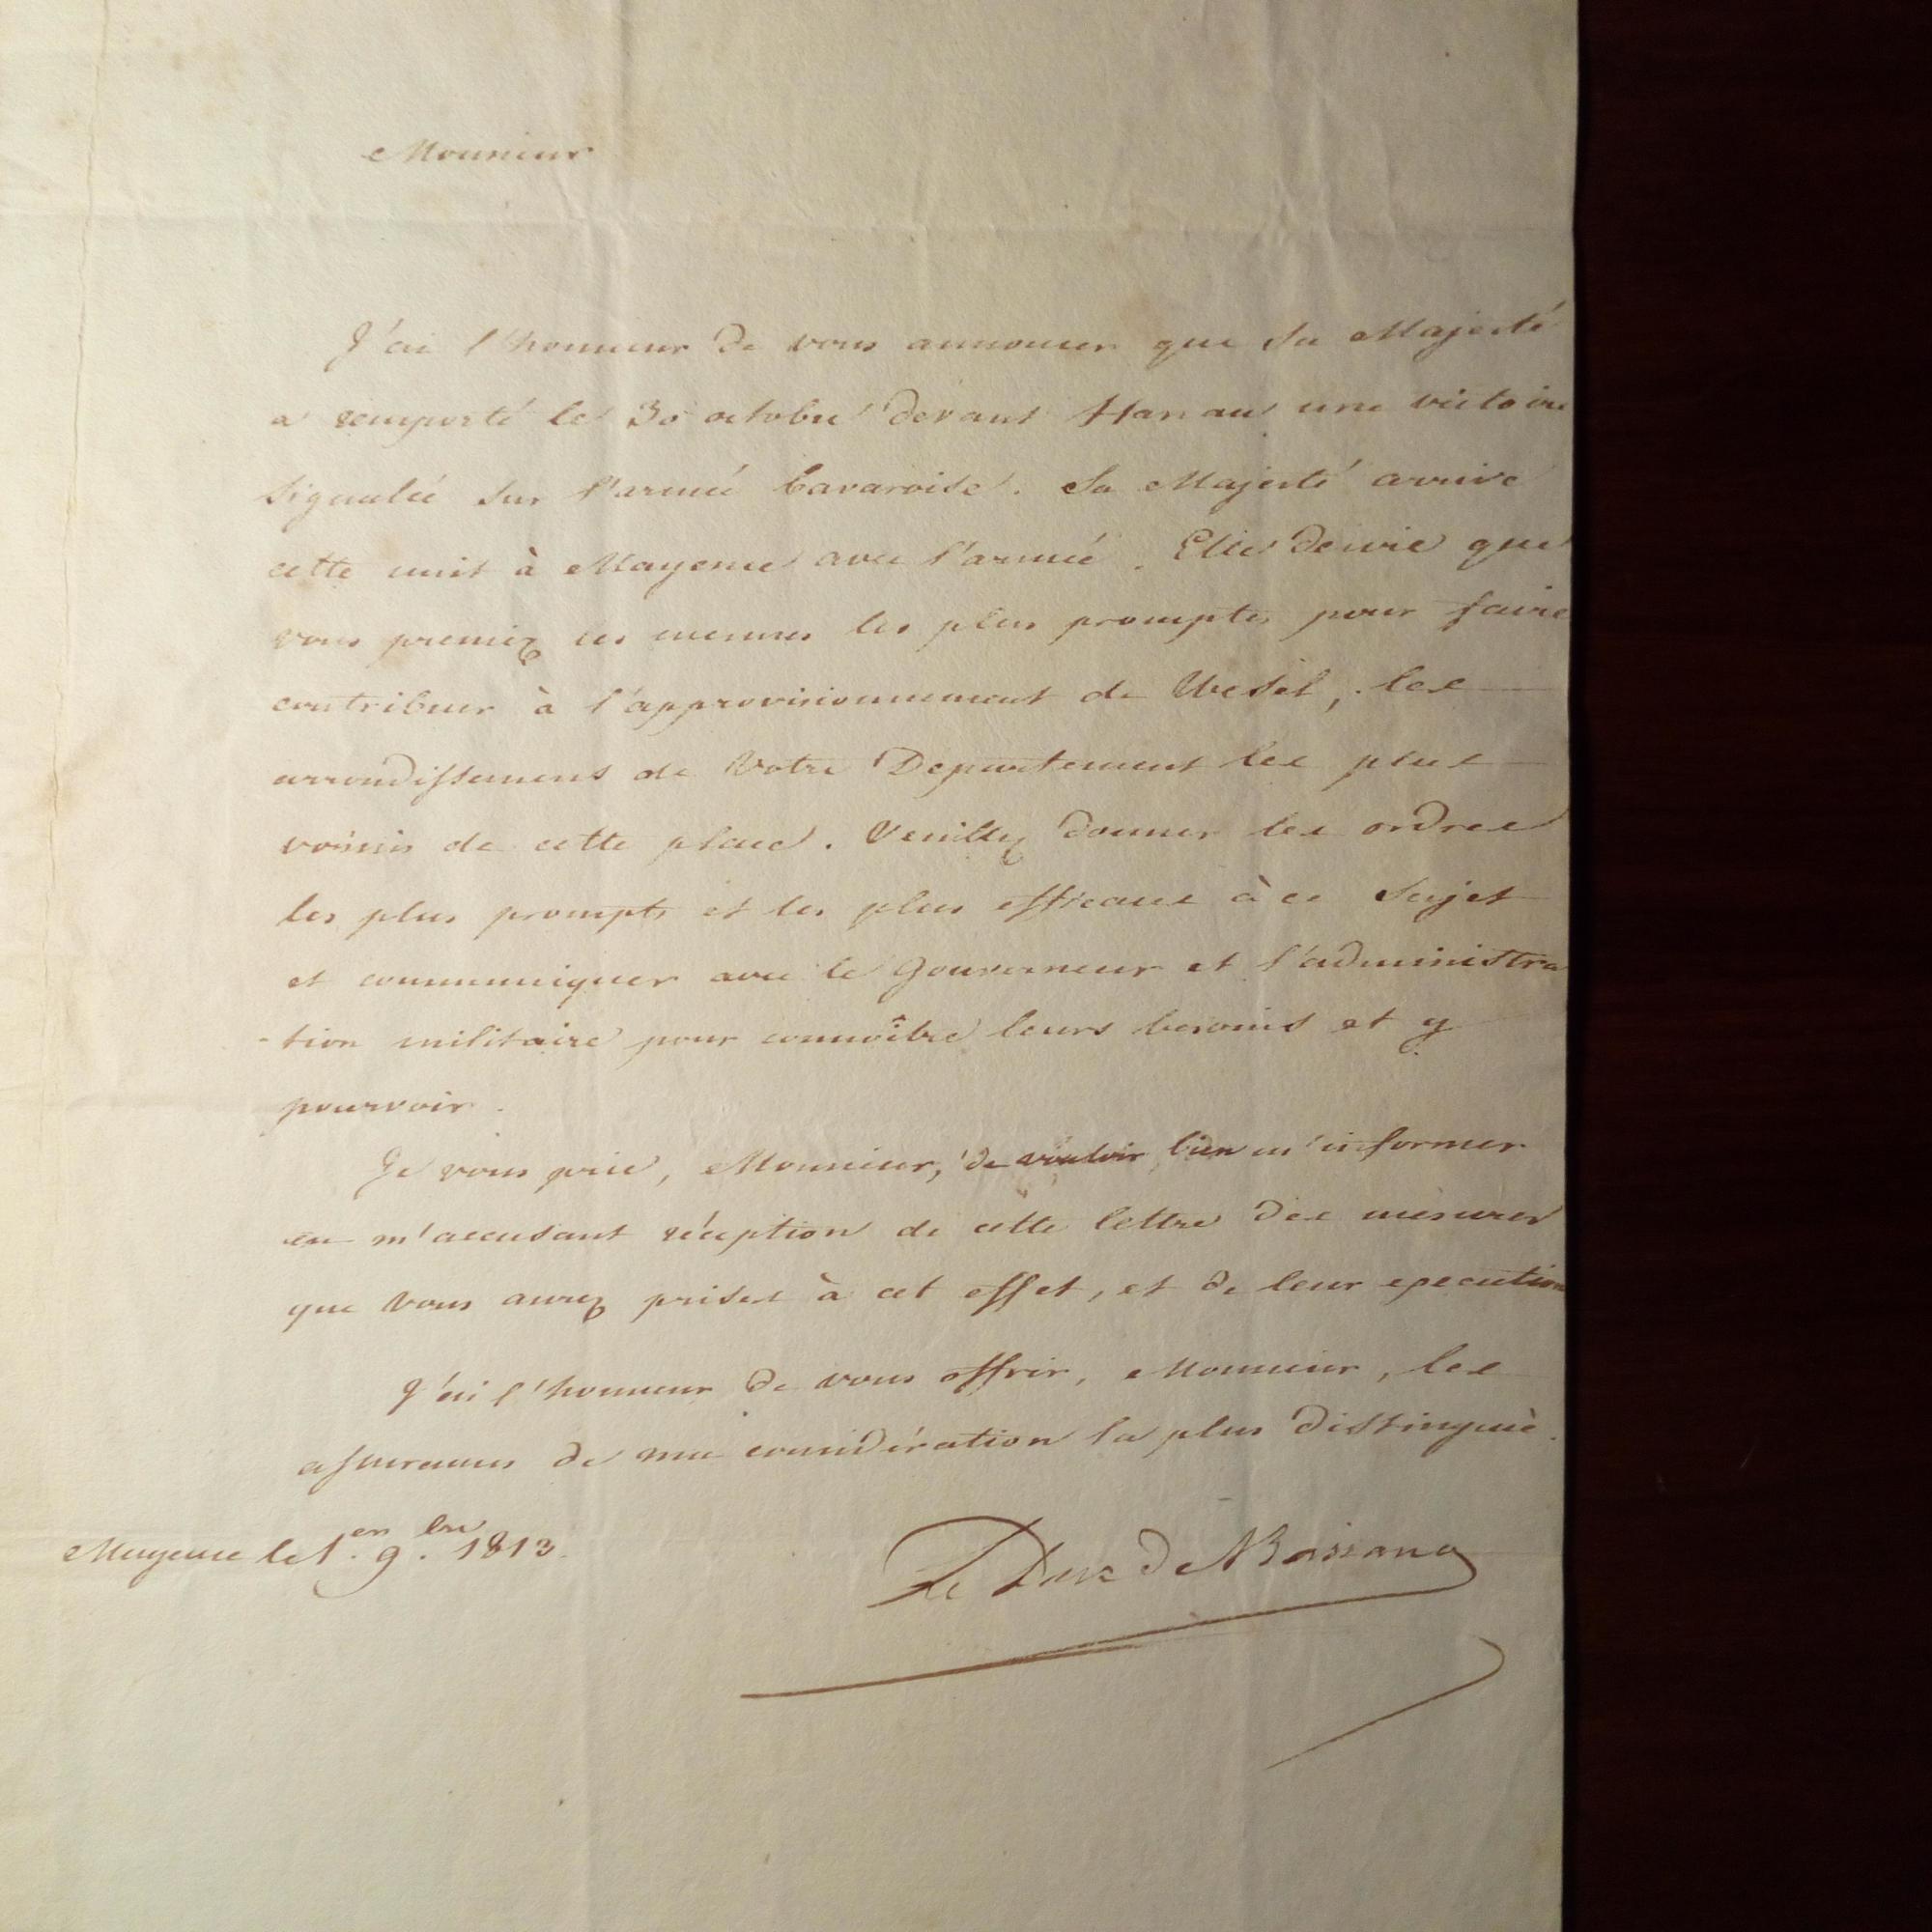 Monsieur
J'ai l'honneur de vous annoncer que Sa Majesté
a remporté le 30 octobre devant Hanau une victoire
signalée sur l'armée bavaroise. Sa Majesté arrive
cette nuit à Mayence avec l'armée. Elle desire que
vous preniez les mesures les plus promptes pour faire
contribuer à l'approvisionnement de Wesel, les
arrondissemens de Votre Département les plus
voisins de cette place. Veuillez donner les ordres
les plus prompts et les plus efficaces à ce Sujet
et communiquer avec le Gouverneur et l'administra
-tion militaire pour connoître leurs besoins et y
pourvoir.
Je vous prie, Monsieur, de vouloir bien m'informer
en m'accusant réception de cette lettre des mesures
que vous aurez prises à cet effet, et de leur execution
J'ai l'honneur de vous offrir, Monsieur, les
assurances de ma considération la plus distinguée.
Mayence le 1.er 9.bre 1813.
Le Duc de Bassano